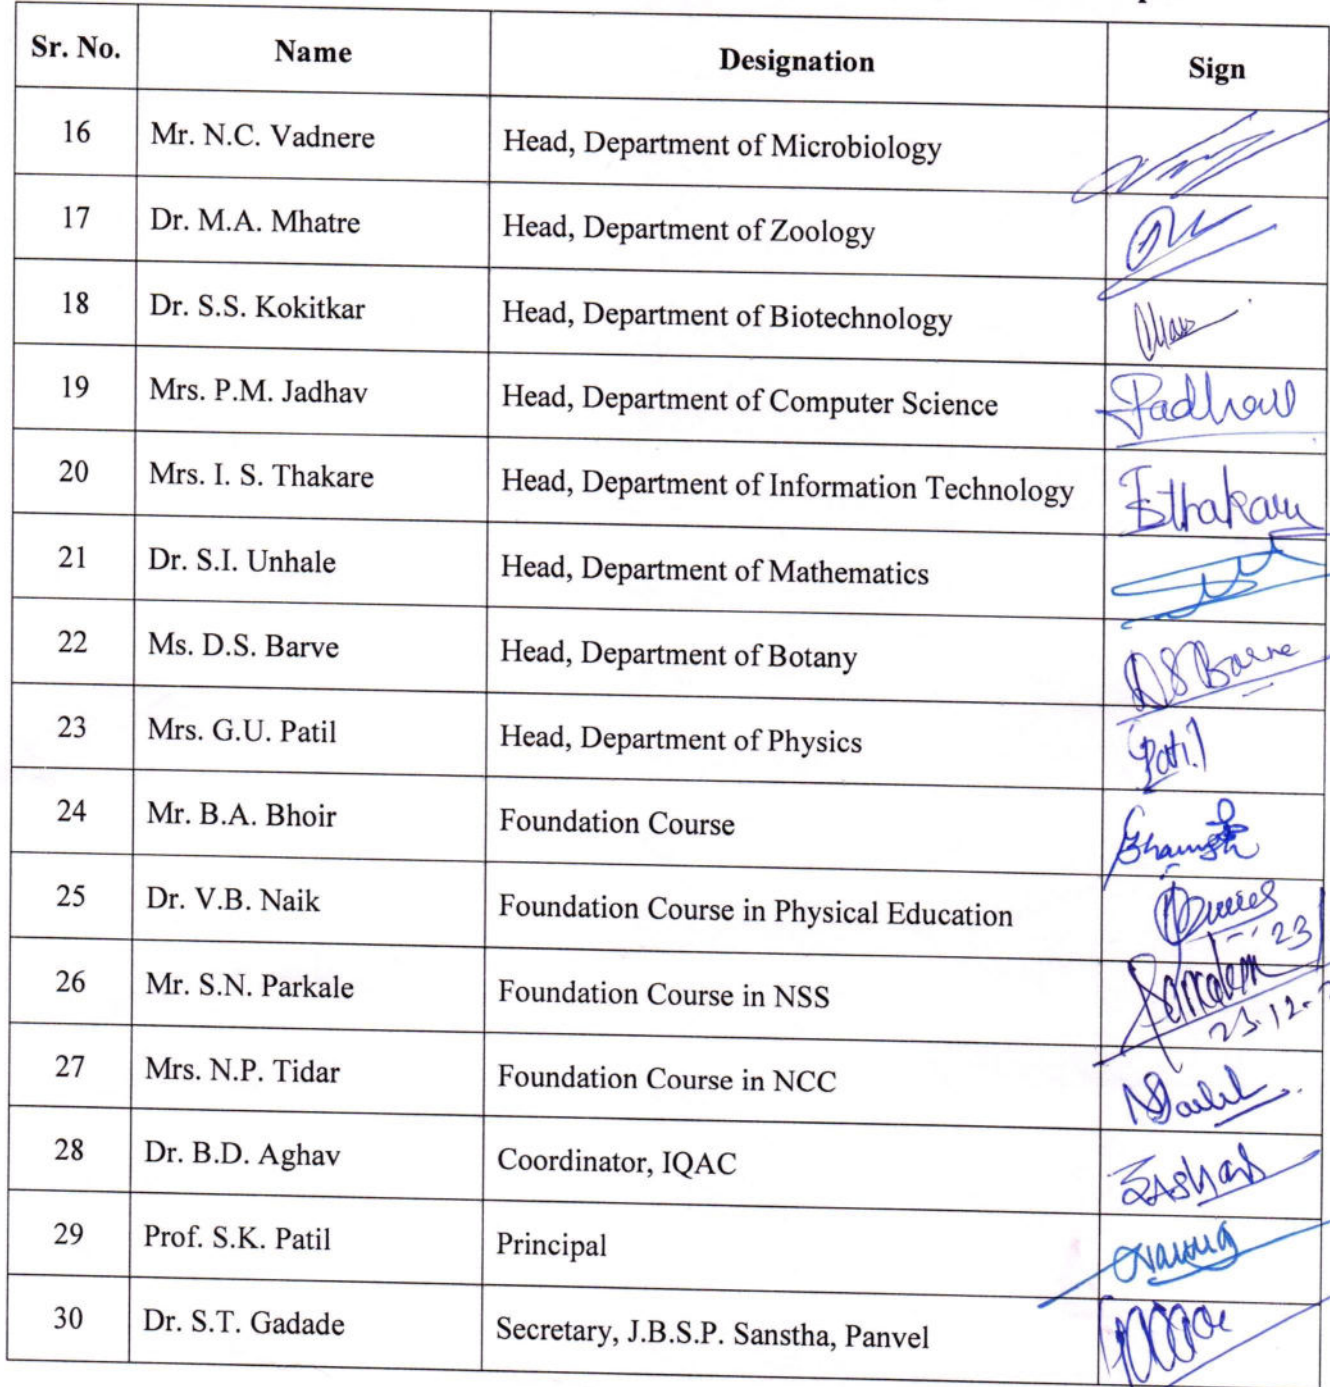 Sr. No. Name Designation Sign
16 Mr. N.C. Vadnere Head, Department of Microbiology
17 Dr. M.A. Mhatre Head, Department of Zoology
18 Dr. S.S. Kokitkar Head, Department of Biotechnology
19 Mrs. P.M. Jadhav Head, Department of Computer Science
20 Mrs. I. S. Thakare Head, Department of Information Technology
21 Dr. S.I. Unhale Head, Department of Mathematics
22 Ms. D.S. Barve Head, Department of Botany DSBarve
23 Mrs. G.U. Patil Head, Department of Physics Patil
24 Mr. B.A. Bhoir Foundation Course
25 Dr. V.B. Naik Foundation Course in Physical Education
26 Mr. S.N. Parkale Foundation Course in NSS
23.12.
27 Mrs. N.P. Tidar Foundation Course in NCC
28 Dr. B.D. Aghav Coordinator, IQAC
29 Prof. S.K. Patil Principal
30 Dr. S.T. Gadade Secretary, J.B.S.P. Sanstha, Panvel